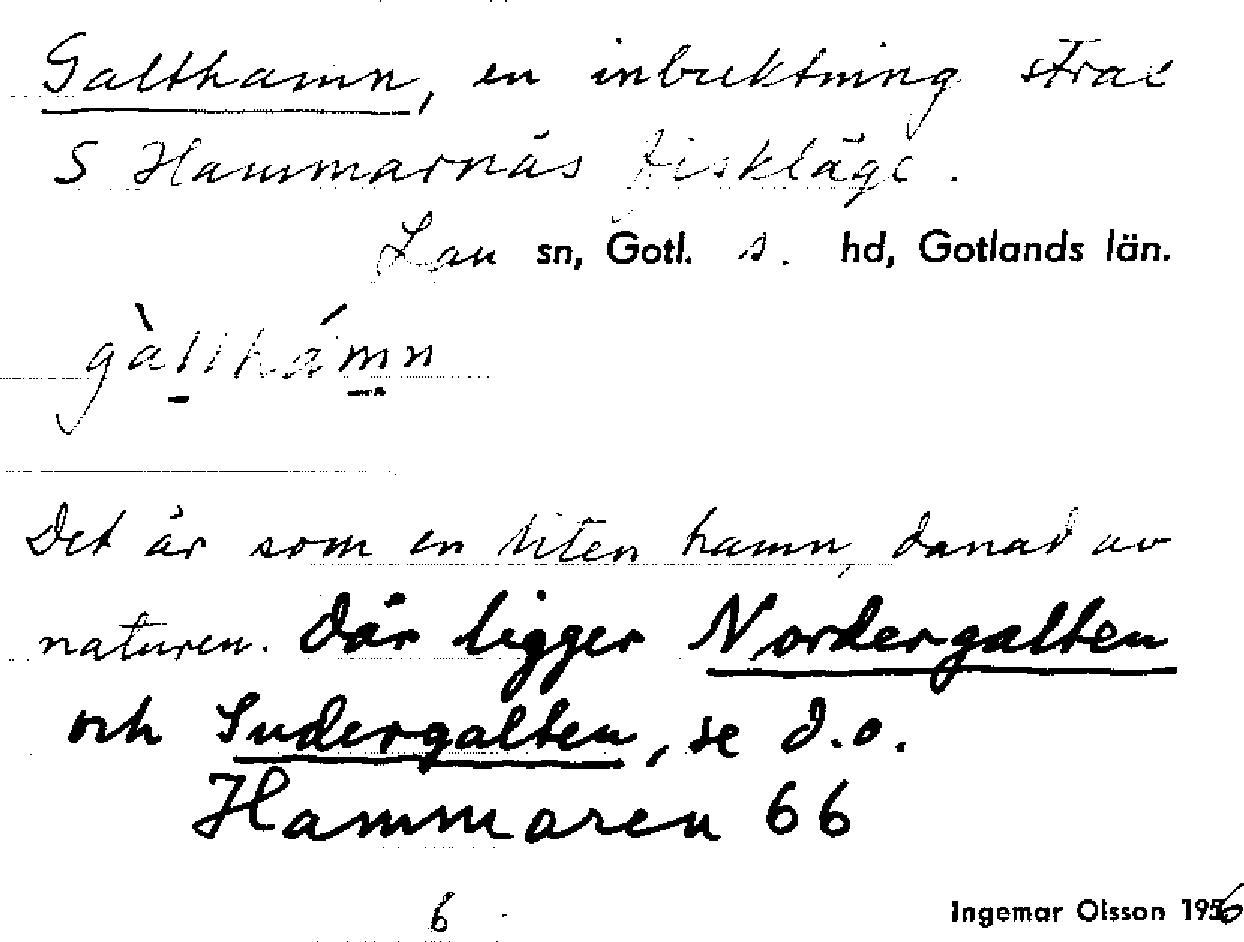 Galthamn, en inbuktning strax
S Hammarnäs fiskläge.
Lau sn, Gotl. s. hd, Gotlands län.
gàlthámn
Det är som en liten hamn, danad av
naturen. Där ligger Nordergalten
och Sudergalten, se d.o.
Hammaren 66
6
Ingemar Olsson 1956